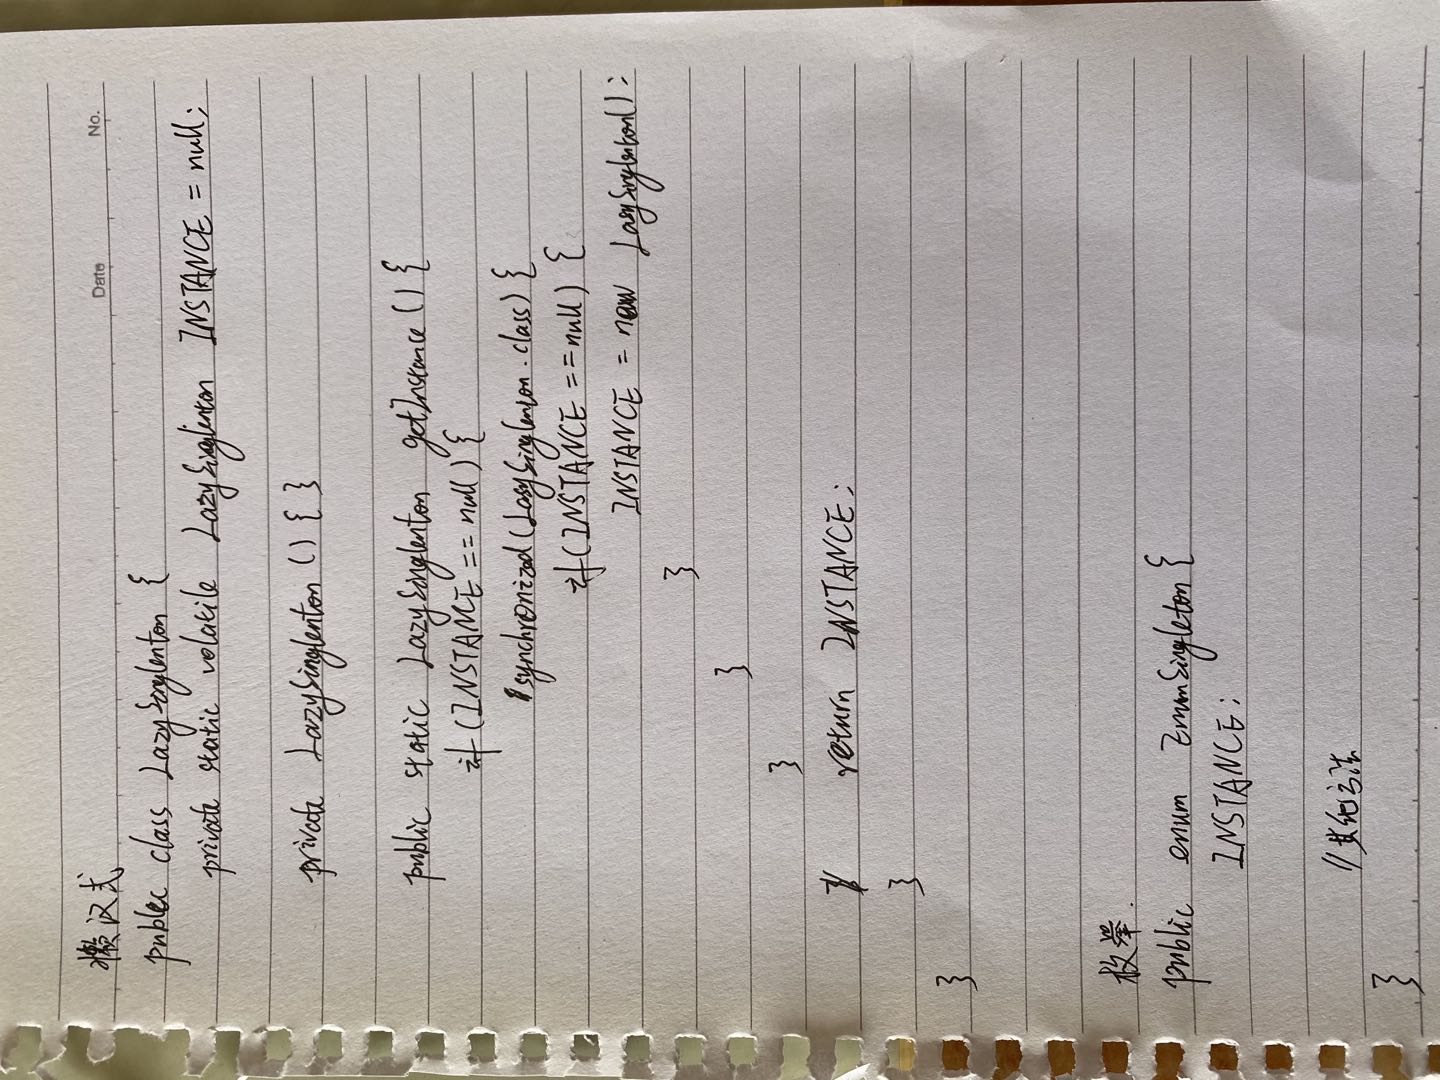 Date No.
懒汉式
public class LazySinglenton {
private static volatile LazySinglenton INSTANCE = null;
private LazySinglenton () { }
public static LazySinglenton getInstance () {
if (INSTANCE == null) {
synchronized (LazySinglenton.class) {
if (INSTANCE == null) {
INSTANCE = new LazySinglenton();
}
}
}
return INSTANCE;
}
}
枚举.
public enum EnumSingleton {
INSTANCE;
//其他方法
}